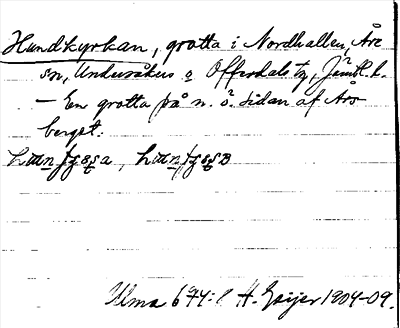 Hundkyrkan, grotta i Nordhallen, Åre
sn, Undersåkers o Offerdals tg, Jämtl. l.
– En grotta på n. ö. sidan af Års
berget.
Ulma 694:1 H. Geijer 1904-09.